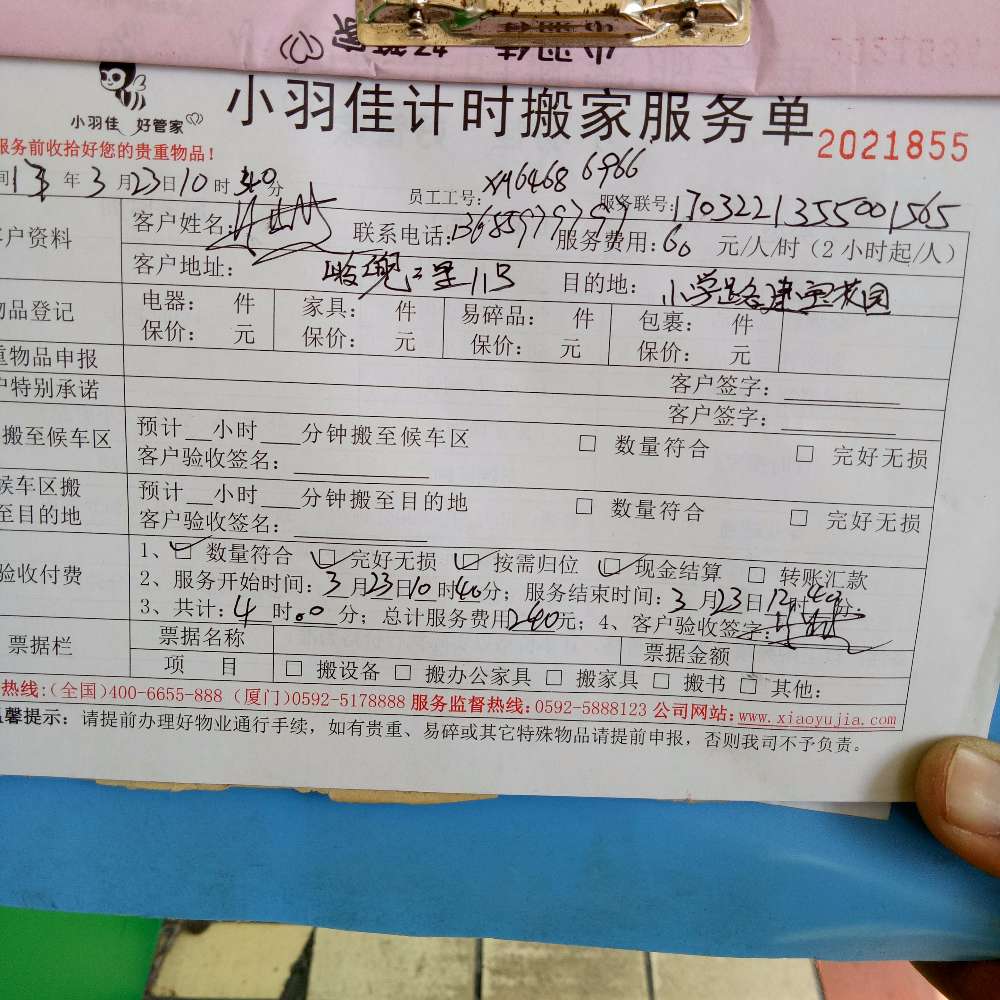 小羽佳 好管家
小羽佳 好管家
小羽佳计时搬家服务单
2021855
服务前收拾好您的贵重物品!
年3月23日10时40分
员工工号: XM6468 6966
服务联号: 1703221355001565
户资料
客户姓名:
联系电话: 13685979797
服务费用: 60 元/人/时(2小时起/人)
客户地址: 11号
目的地: 小学路建宝花园
物品登记
电器: 件 家具: 件 易碎品: 件 包裹: 件
保价: 元 保价: 元 保价: 元 保价: 元
重物品申报
客户签字:
户特别承诺
客户签字:
搬至候车区
预计__小时___分钟搬至候车区 □ 数量符合 □ 完好无损
客户验收签名:
候车区搬
至目的地
预计__小时___分钟搬至目的地 □ 数量符合 □ 完好无损
客户验收签名:
验收付费
1、☑ 数量符合 ☑ 完好无损 ☑ 按需归位 ☑ 现金结算 □ 转账汇款
2、服务开始时间: 3月23日10时40分; 服务结束时间: 3月23日12时40分.
3、共计: 4时00分; 总计服务费用240元; 4、客户验收签字:
票据栏
票据名称 票据金额
项 目 □ 搬设备 □ 搬办公家具 □ 搬家具 □ 搬书 □ 其他:
热线:(全国)400-6655-888 (厦门)0592-5178888 服务监督热线:0592-5888123 公司网站:www.xiaoyujia.com
温馨提示: 请提前办理好物业通行手续, 如有贵重、易碎或其它特殊物品请提前申报, 否则我司不予负责。